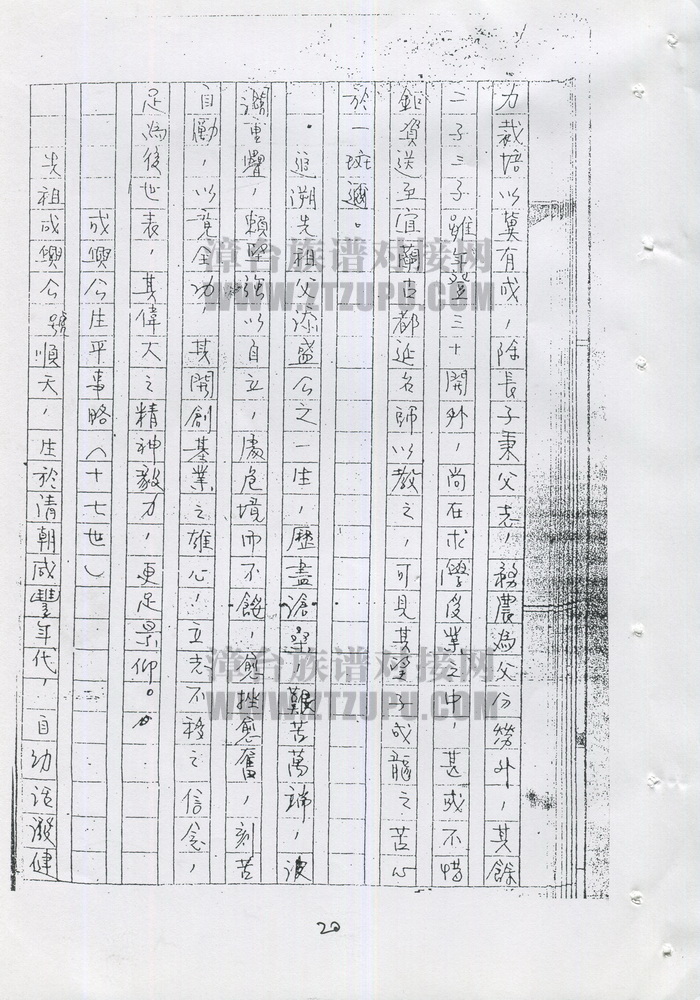 力栽培以冀有成，除長子秉父志，務農為父分勞外，其餘
二子三子雖年登三十開外，尚在求學授業之中，甚或不惜
鉅資送至宜蘭古都延名師以教之，可見其望子成龍之苦心
於一斑矣。
追溯先祖父添盛公之一生，歷盡滄桑艱苦萬端，波
瀾重疊，賴堅強以自立，處危境而不餒，愈挫愈奮，刻苦
自勵，以竟全功，其開創基業之雄心，立志不移之信念，
足為後世表，其偉大之精神毅力，更足景仰。
成興公生平事略（十七世）
先祖成興公號順天，生於清朝咸豐年代，自幼活潑健
20
漳台族谱对接网
WWW.ZTZUPU.COM
漳台族谱对接网
WWW.ZTZUPU.COM